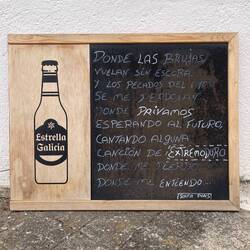 Estrella
Galicia
DONDE LAS BRUJAS
VUELAN SIN ESCOBA
Y LOS PECADOS DEL
SE ME
DONDE PRIVAMOS
ESPERANDO AL FUTURO,
CANTANDO ALGUNA
CANCIÓN DE EXTREMODURO
DONDE ME
DONDE ME ENTIENDO...